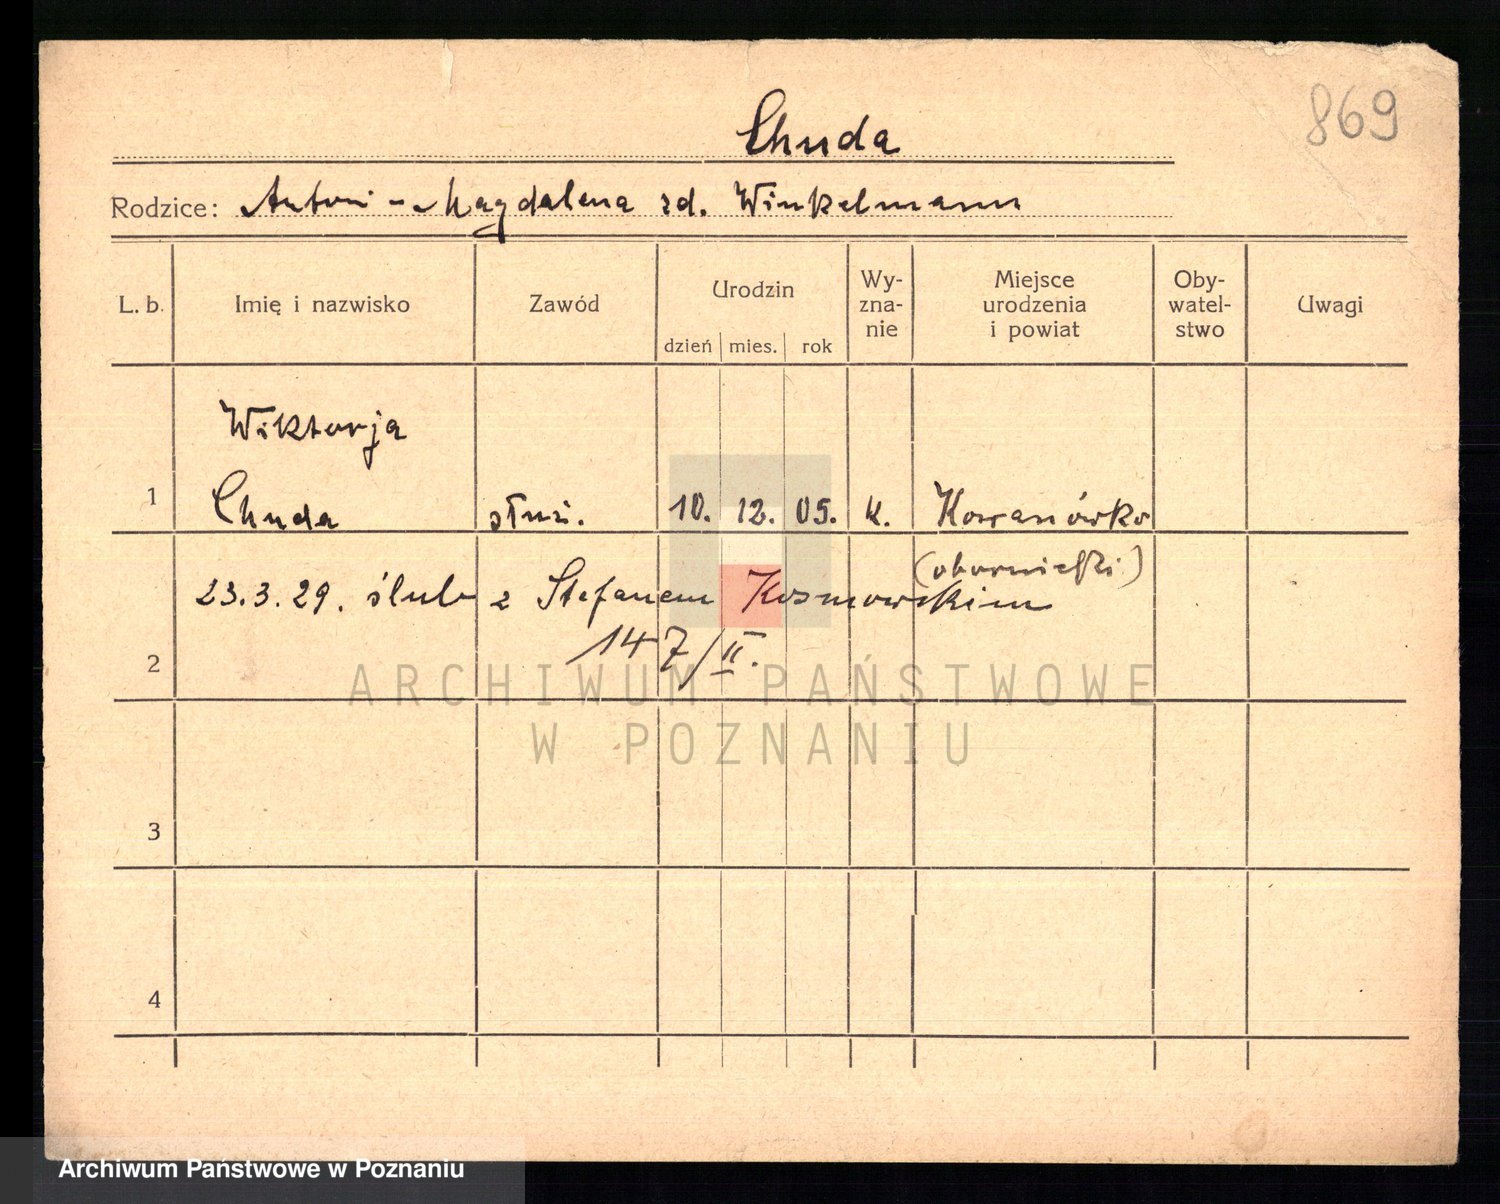 869
Chuda
Rodzice: Antoni - Magdalena zd. Winkelmann
L. b. Imię i nazwisko Zawód Urodzin Wy-zna-nie Miejsce urodzenia i powiat Oby-watel-stwo Uwagi
dzień mies. rok
Wiktorja
1 Chuda służ. 10. 12. 05. k. Kowanówko
(obornicki)
23.3.29. ślub z Stefanem Kosmowskim
147/II.
2
ARCHIWUM PAŃSTWOWE
W POZNANIU
3
4
Archiwum Państwowe w Poznaniu